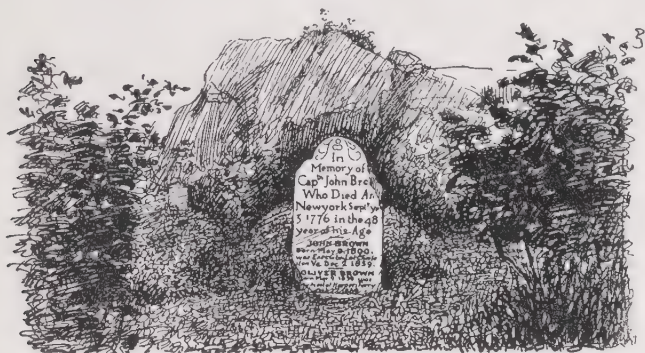 In
Memory of
Capᵗⁿ John Bro
Who Died At
Newyork Septʳ yᵉ
3 1776 in the 48
year of his Age
JOHN BROWN
Born May 9 1800.
was Executed at
Va Dec 2 1859.
OLIVER BROWN
1839 was